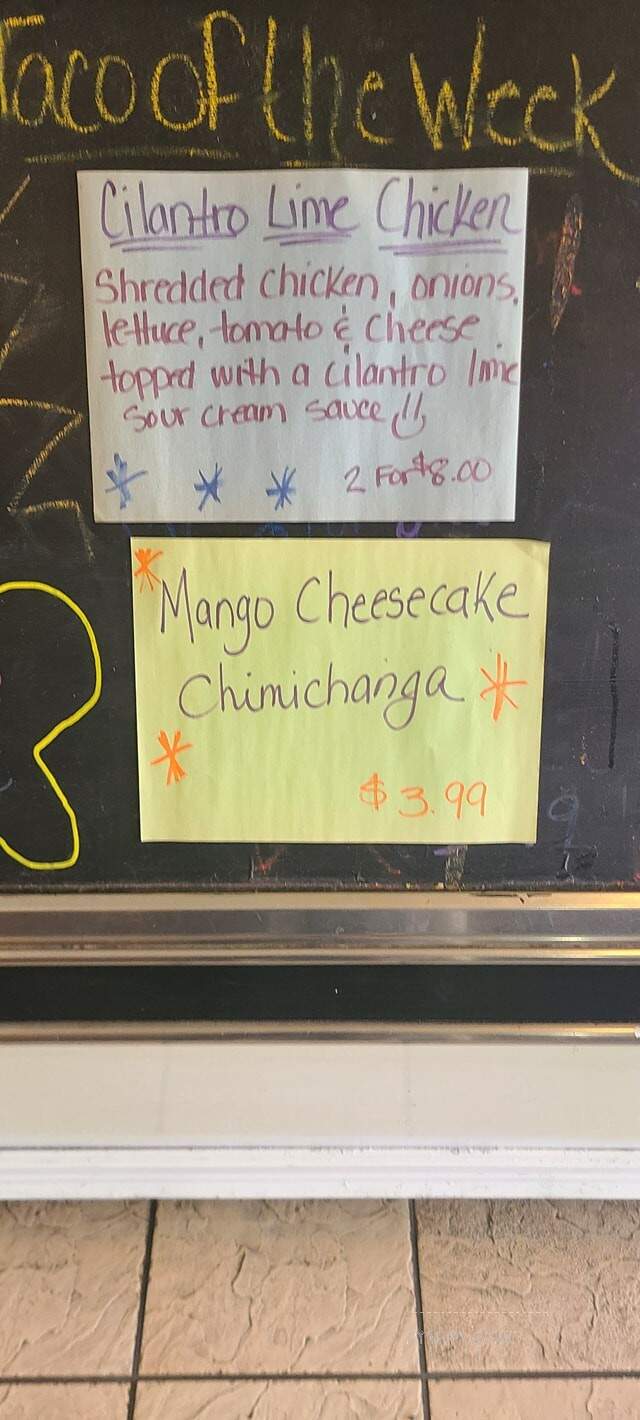 Taco of the Week
Cilantro Lime Chicken
Shredded Chicken, onions,
lettuce, tomato & cheese
topped with a cilantro lime
sour cream sauce!!
2 For $8.00
Mango Cheesecake
Chimichanga
$3.99